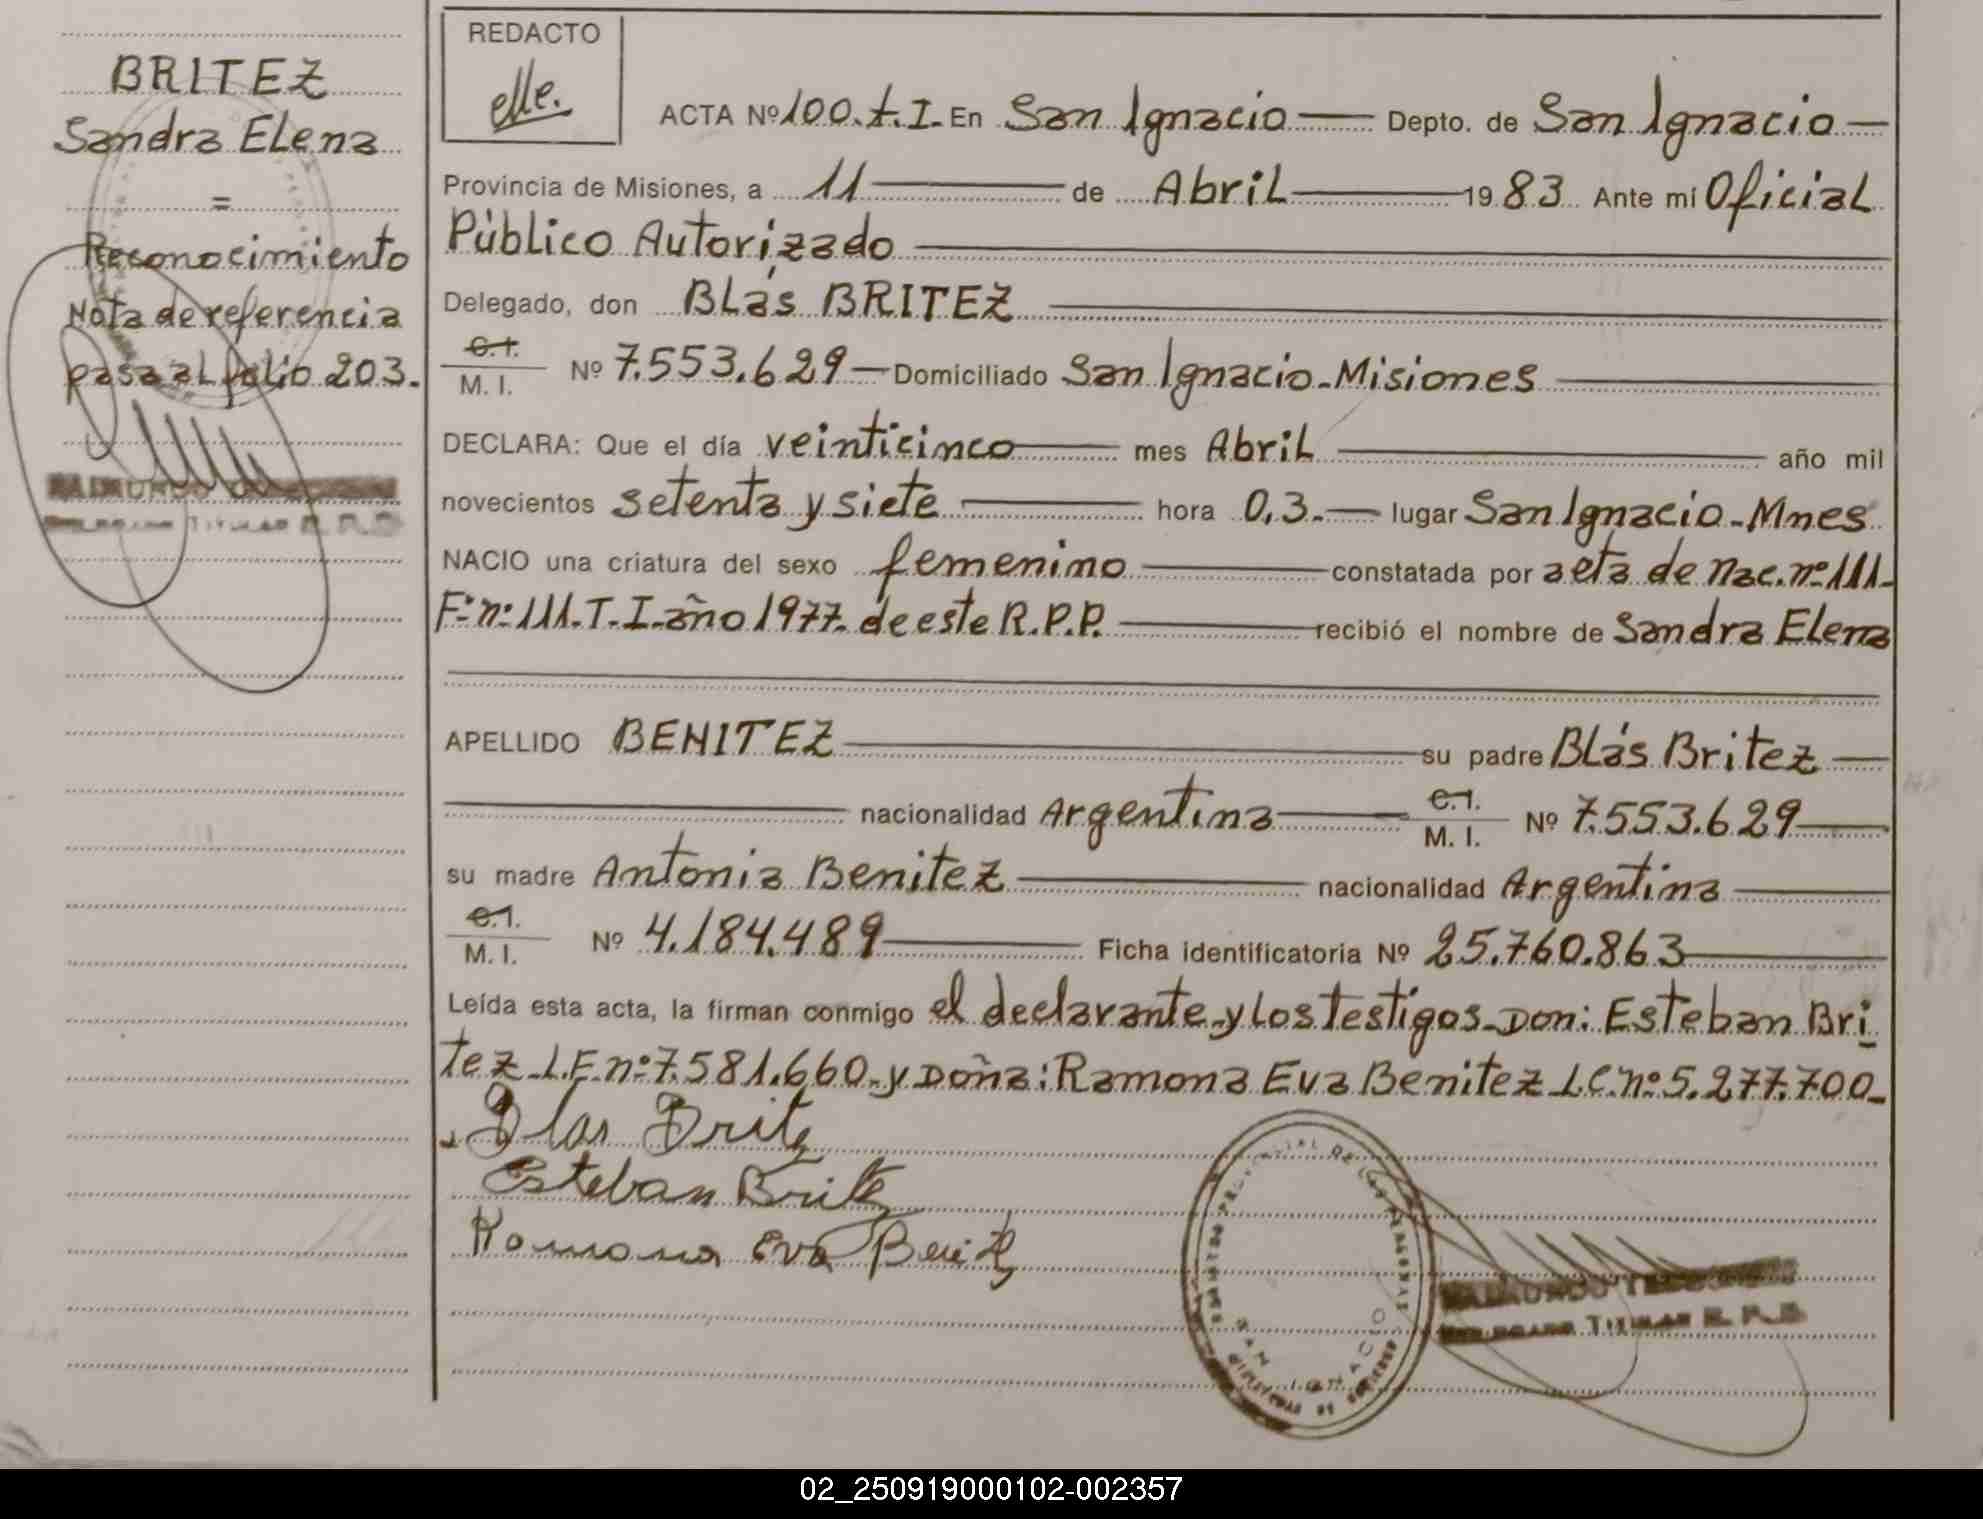 BRITEZ
Sandra Elena
=
Reconocimiento
Nota de referencia
pasa al folio 203.
DELEGADO TITULAR R. P. P.
REDACTO
elle.
ACTA Nº 100. t. I. En San Ignacio — Depto. de San Ignacio —
Provincia de Misiones, a 11 — de Abril — 19 83 Ante mí Oficial
Público Autorizado
Delegado, don Blás BRITEZ
C.I.
M. I. Nº 7.553.629 — Domiciliado San Ignacio - Misiones
DECLARA: Que el día veinticinco — mes Abril — año mil
novecientos setenta y siete — hora 0,3. — lugar San Ignacio - Mnes
NACIO una criatura del sexo femenino — constatada por acta de nac. nº 111-
Fº nº 111. T. I. año 1977. de este R.P.P. — recibió el nombre de Sandra Elena
APELLIDO BENITEZ — su padre Blás Britez —
nacionalidad Argentina — C.I. M. I. Nº 7.553.629 —
su madre Antonia Benitez — nacionalidad Argentina —
C.I.
M. I. Nº 4.184.489 — Ficha identificatoria Nº 25.760.863 —
Leída esta acta, la firman conmigo el declarante y los testigos - Don: Esteban Bri
tez - L.E. nº 7.581.660 - y Doña: Ramona Eva Benitez L.C. nº 5.277.700 -
Blas Britez
Esteban Britez
Ramona Eva Benitez
SAN IGNACIO
RAIMUNDO
DELEGADO TITULAR R. P. P.
02_250919000102-002357